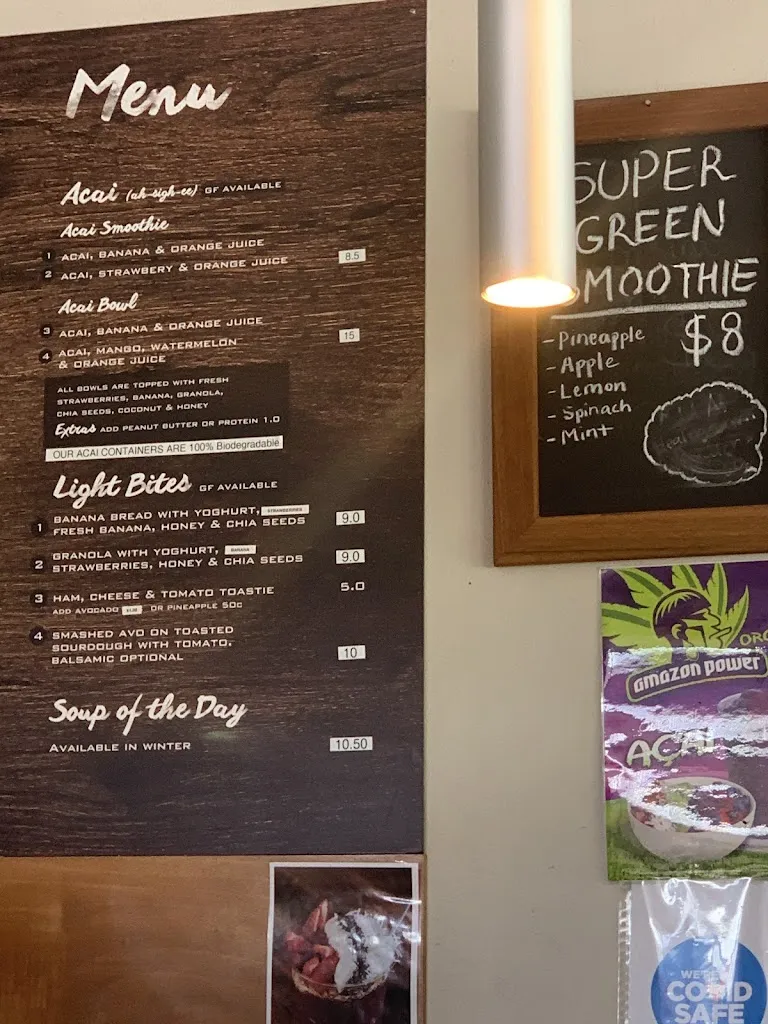 Menu
Acai (ah-sigh-ee) GF AVAILABLE
Acai Smoothie
1 ACAI, BANANA & ORANGE JUICE
2 ACAI, STRAWBERY & ORANGE JUICE 8.5
Acai Bowl
3 ACAI, BANANA & ORANGE JUICE
15
4 ACAI, MANGO, WATERMELON
& ORANGE JUICE
ALL BOWLS ARE TOPPED WITH FRESH
STRAWBERRIES, BANANA, GRANOLA,
CHIA SEEDS, COCONUT & HONEY
Extras ADD PEANUT BUTTER OR PROTEIN 1.0
OUR ACAI CONTAINERS ARE 100% Biodegradable
Light Bites GF AVAILABLE
1 BANANA BREAD WITH YOGHURT, STRAWBERRIES
FRESH BANANA, HONEY & CHIA SEEDS 9.0
2 GRANOLA WITH YOGHURT, BANANA
STRAWBERRIES, HONEY & CHIA SEEDS 9.0
3 HAM, CHEESE & TOMATO TOASTIE 5.0
ADD AVOCADO OR PINEAPPLE 50c
4 SMASHED AVO ON TOASTED
SOURDOUGH WITH TOMATO,
BALSAMIC OPTIONAL 10
Soup of the Day
AVAILABLE IN WINTER 10.50
SUPER
GREEN
SMOOTHIE
$8
- Pineapple
- Apple
- Lemon
- Spinach
- Mint
ORG
amazon power
AÇAI
WE'RE
COVID
SAFE